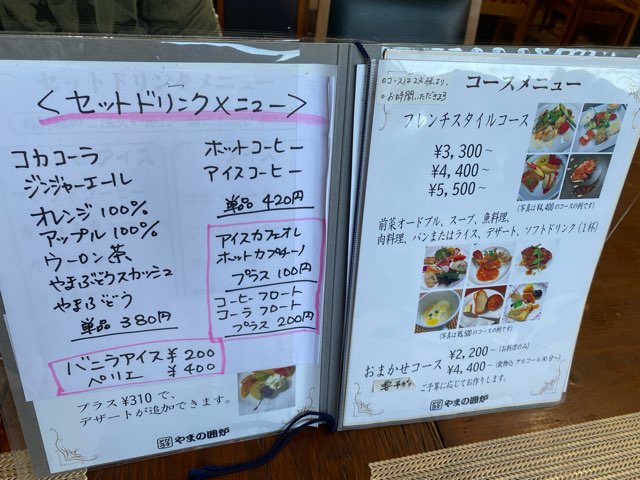 <セットドリンクメニュー>
コカコーラ
ジンジャーエール
オレンジ100%
アップル100%
ウーロン茶
やまぶどうスカッシュ
やまぶどう
単品 380円
ホットコーヒー
アイスコーヒー
単品 420円
アイスカフェオレ
ホットカプチーノ
プラス 100円
コーヒーフロート
コーラフロート
プラス 200円
バニラアイス ¥200
ペリエ ¥400
プラス¥310で、
デザートが追加できます。
やまの囲炉
コースメニュー
○コースは2名様より、
○お時間いただきます
フレンチスタイルコース
¥3,300~
¥4,400~
¥5,500~
(写真は¥4,400のコースの例です)
前菜オードブル、スープ、魚料理、
肉料理、パンまたはライス、デザート、ソフトドリンク(1杯)
(写真は¥5,500のコースの例です)
おまかせコース
¥2,200~(お料理のみ)
¥4,400~(飲物込 アルコール90分~)
要予約
ご予算に応じてお作りします。
やまの囲炉